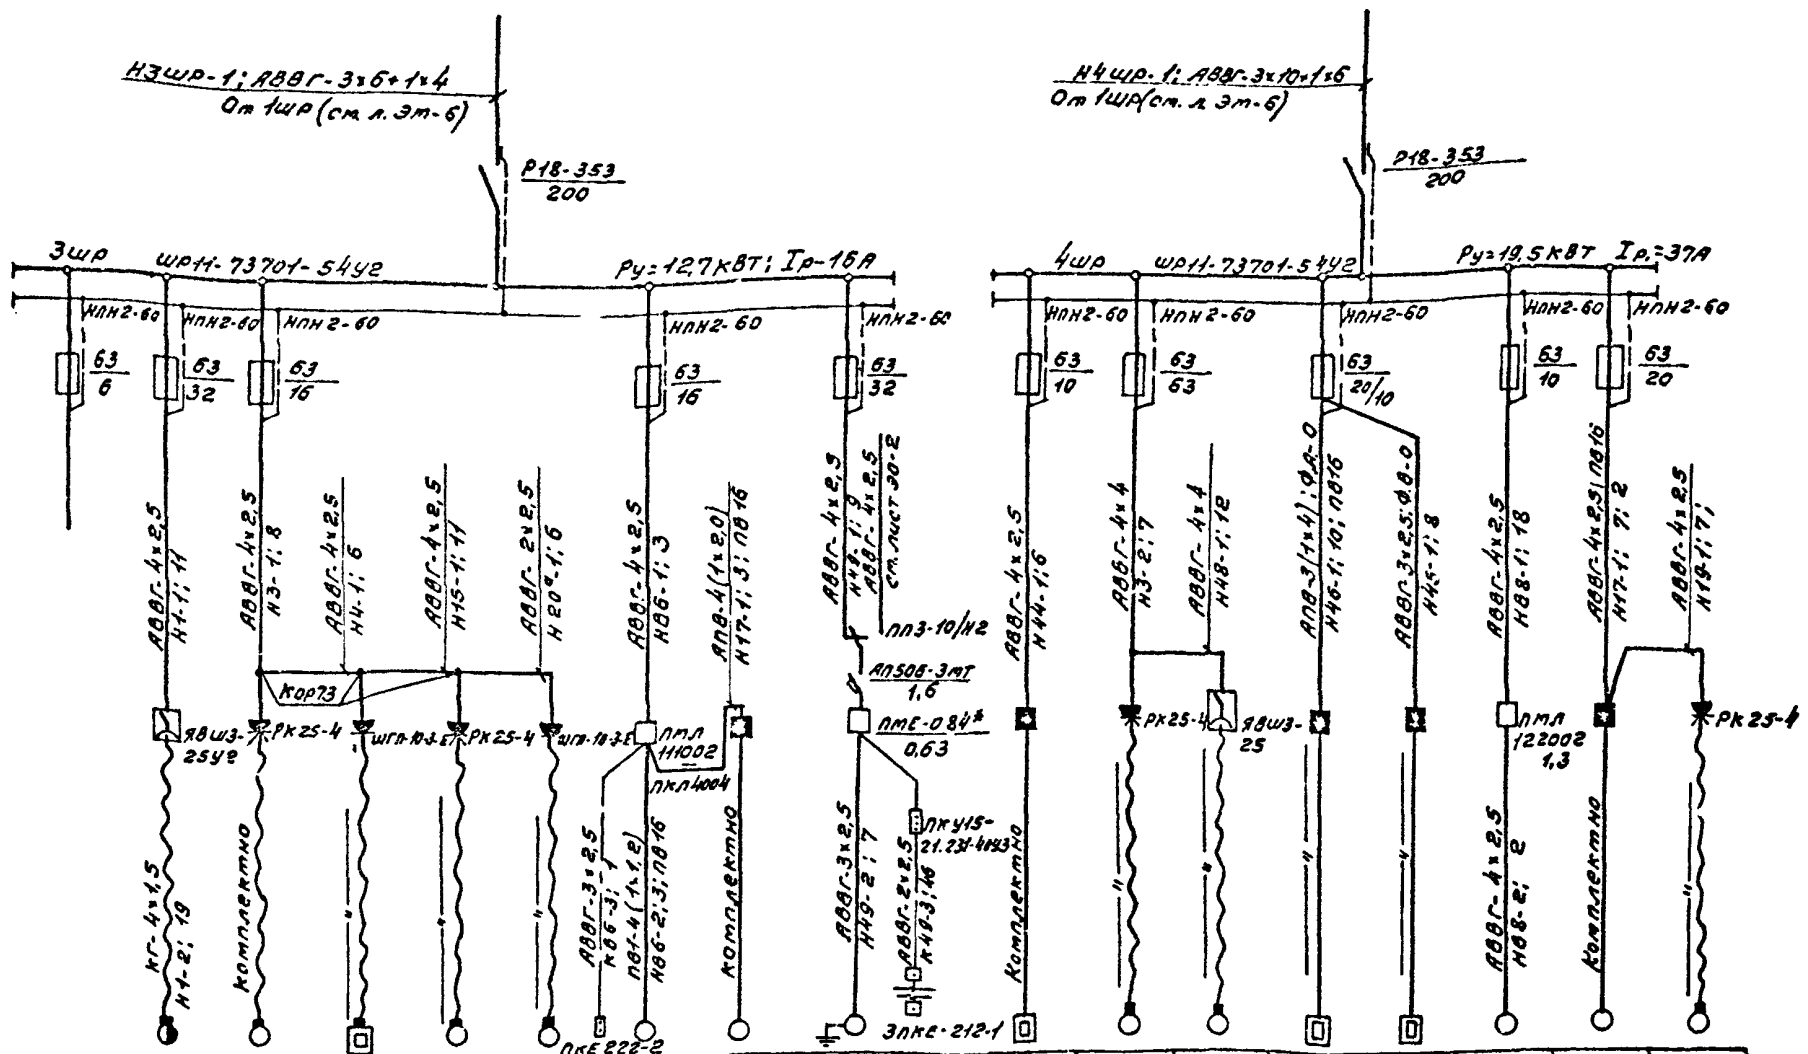 Н3шр-1; АВВГ-3х6+1х4
От 1шр (см. л. Эт-6)
Р18-353
200
3шр
шр11-73701-54у2
Ру=12,7кВт; Iр-16А
НПН2-60
НПН2-60
НПН2-60
НПН2-60
НПН2-60
63
6
63
32
63
16
63
16
63
32
АВВГ-4х2,5
Н1-1; 11
АВВГ-4х2,5
Н3-1; 8
АВВГ-4х2,5
Н4-1; 6
АВВГ-4х2,5
Н15-1; 11
АВВГ-2х2,5
Н20ª-1; 6
АВВГ-4х2,5
НВ6-1; 3
АПВ-4(1х2,0)
Н17-1; 3; ПВ16
АВВГ-4х2,5
Н49-1; 9
АВВГ-4х2,5
см. лист ЭО-2
ПП3-10/Н2
АП50Б-3МТ
1,6
ПМЕ-084*
0,63
Кор73
ЯВШ3-
25у2
РК25-4
ШГП-10-3-Е
РК25-4
ШГП-10-3-Е
ПМЛ
111002
ПКЛ4004
КГ-4х1,5
Н1-2; 19
Комплектно
"
"
"
АВВГ-3х2,5
КВ6-3; 1
ПВ1-4(1х1,2)
НВ6-2; 3; ПВ16
Комплектно
АВВГ-3х2,5
Н49-2; 7
АВВГ-2х2,5
К49-3; 46
ПКУ15-
ПКЕ 222-2
ЗПКЕ-212-1
Н4шр-1; АВВГ-3х10+1х6
От 1шр (см. л. Эт-6)
Р18-353
200
4шр
шр11-73701-54у2
Ру=19,5кВт
Iр.=37А
НПН2-60
НПН2-60
НПН2-60
НПН2-60
НПН2-60
63
10
63
63
63
20/10
63
10
63
20
АВВГ-4х2,5
Н44-1; 6
АВВГ-4х4
Н3-2; 7
АВВГ-4х4
Н48-1; 12
АПВ-3(1х4); ф.А-0
Н46-1; 10; ПВ16
АВВГ-3х2,5; ф.В-0
Н45-1; 8
АВВГ-4х2,5
Н88-1; 18
АВВГ-4х2,5; ПВ16
Н17-1; 7; 2
АВВГ-4х2,5
Н19-1; 7;
РК25-4
ЯВШ3-
25
ПМЛ
122002
1,3
РК25-4
Комплектно
"
"
"
"
АВВГ-4х2,5
Н88-2; 2
Комплектно
"